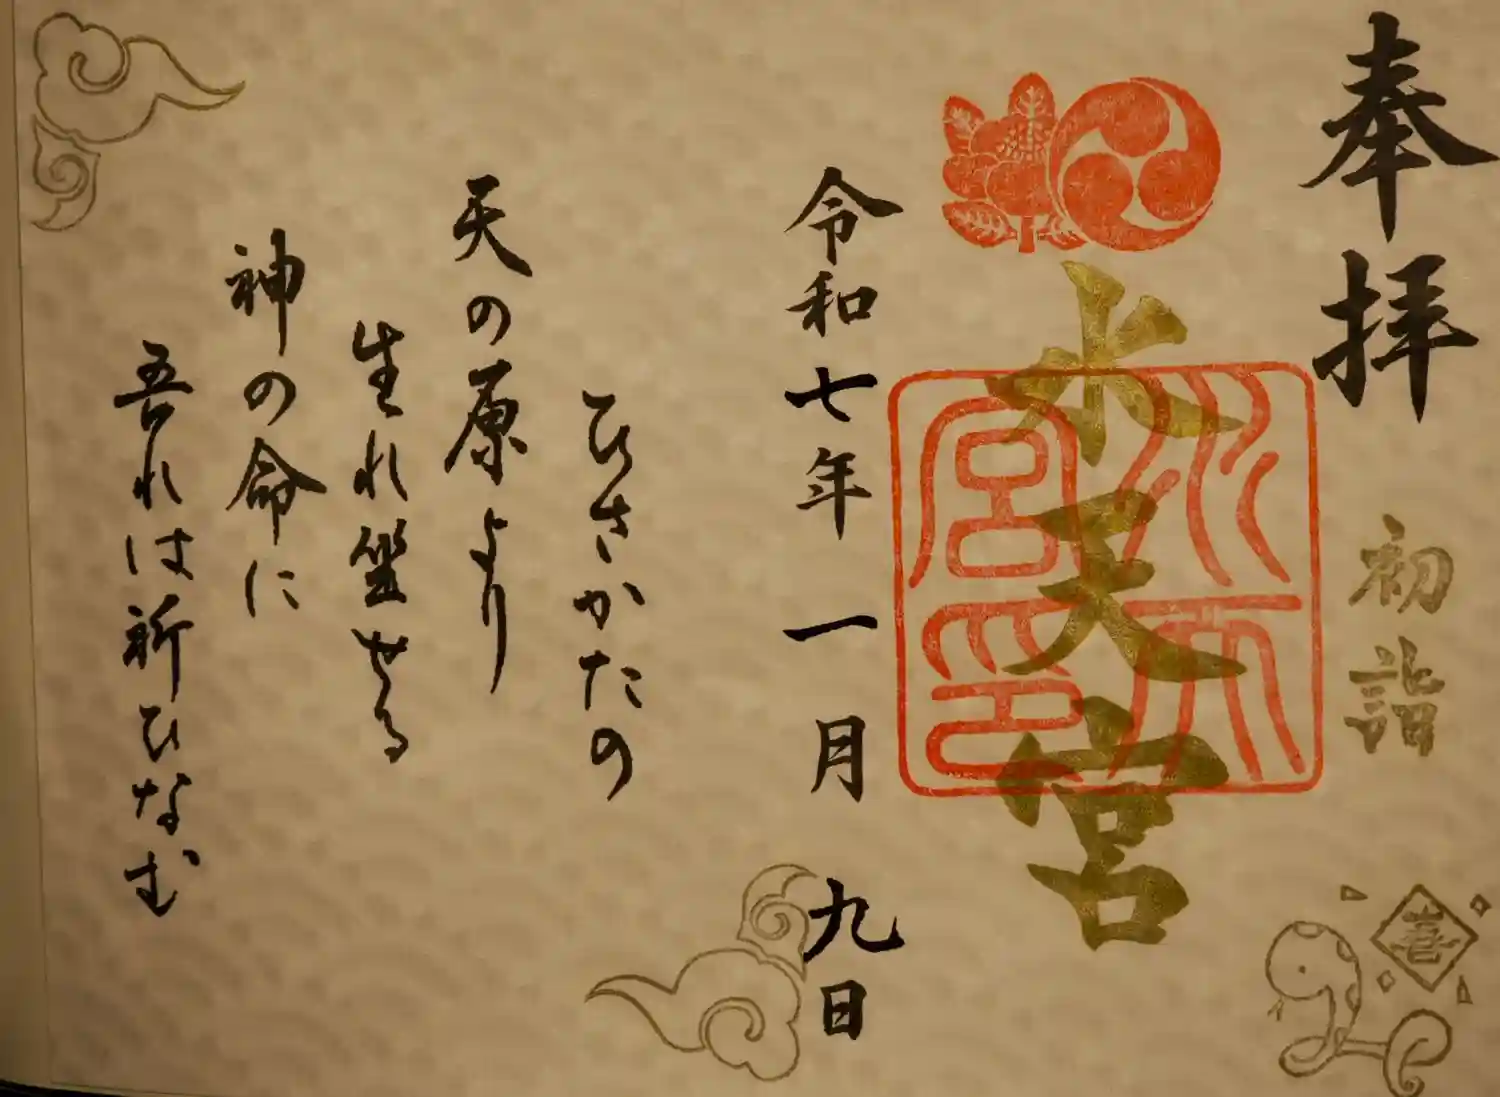 奉拝
初詣
喜
水天宮
水天宮印
令和七年 一月 九日
ひさかたの
天の原より
生れ坐せる
神の命に
吾れは祈ひなむ